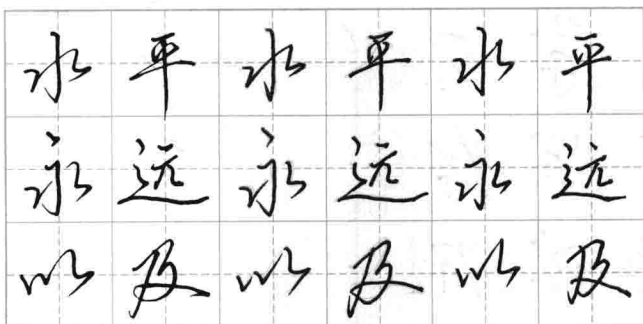 水平水平水平
永远永远永远
以及以及以及